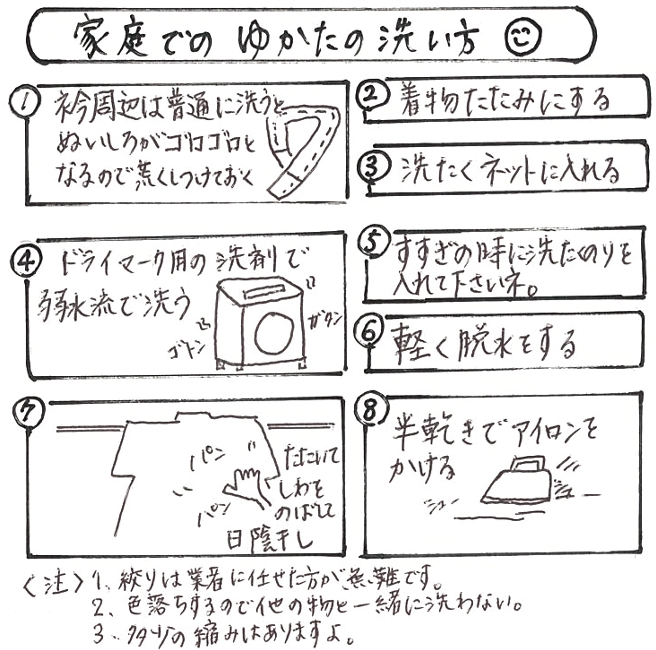 家庭でのゆかたの洗い方
① 衿周辺は普通に洗うと
ぬいしろがゴロゴロと
なるので荒くしつけておく
② 着物たたみにする
③ 洗たくネットに入れる
④ ドライマーク用の洗剤で
弱水流で洗う
ゴトン
ガタン
⑤ すすぎの時に洗たくのりを
入れて下さいネ。
⑥ 軽く脱水をする
⑦
パン
パン
たたいて
しわを
のばして
日陰干し
⑧ 半乾きでアイロンを
かける
ジュー
ジュー
〈注〉1、絞りは業者に任せた方が無難です。
2、色落ちするので他の物と一緒に洗わない。
3、多少の縮みはありますよ。